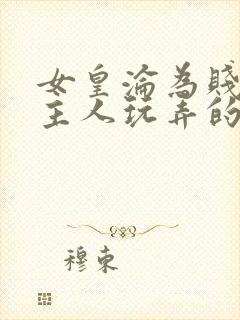 女皇淪為賤
主人玩弄的
穆東